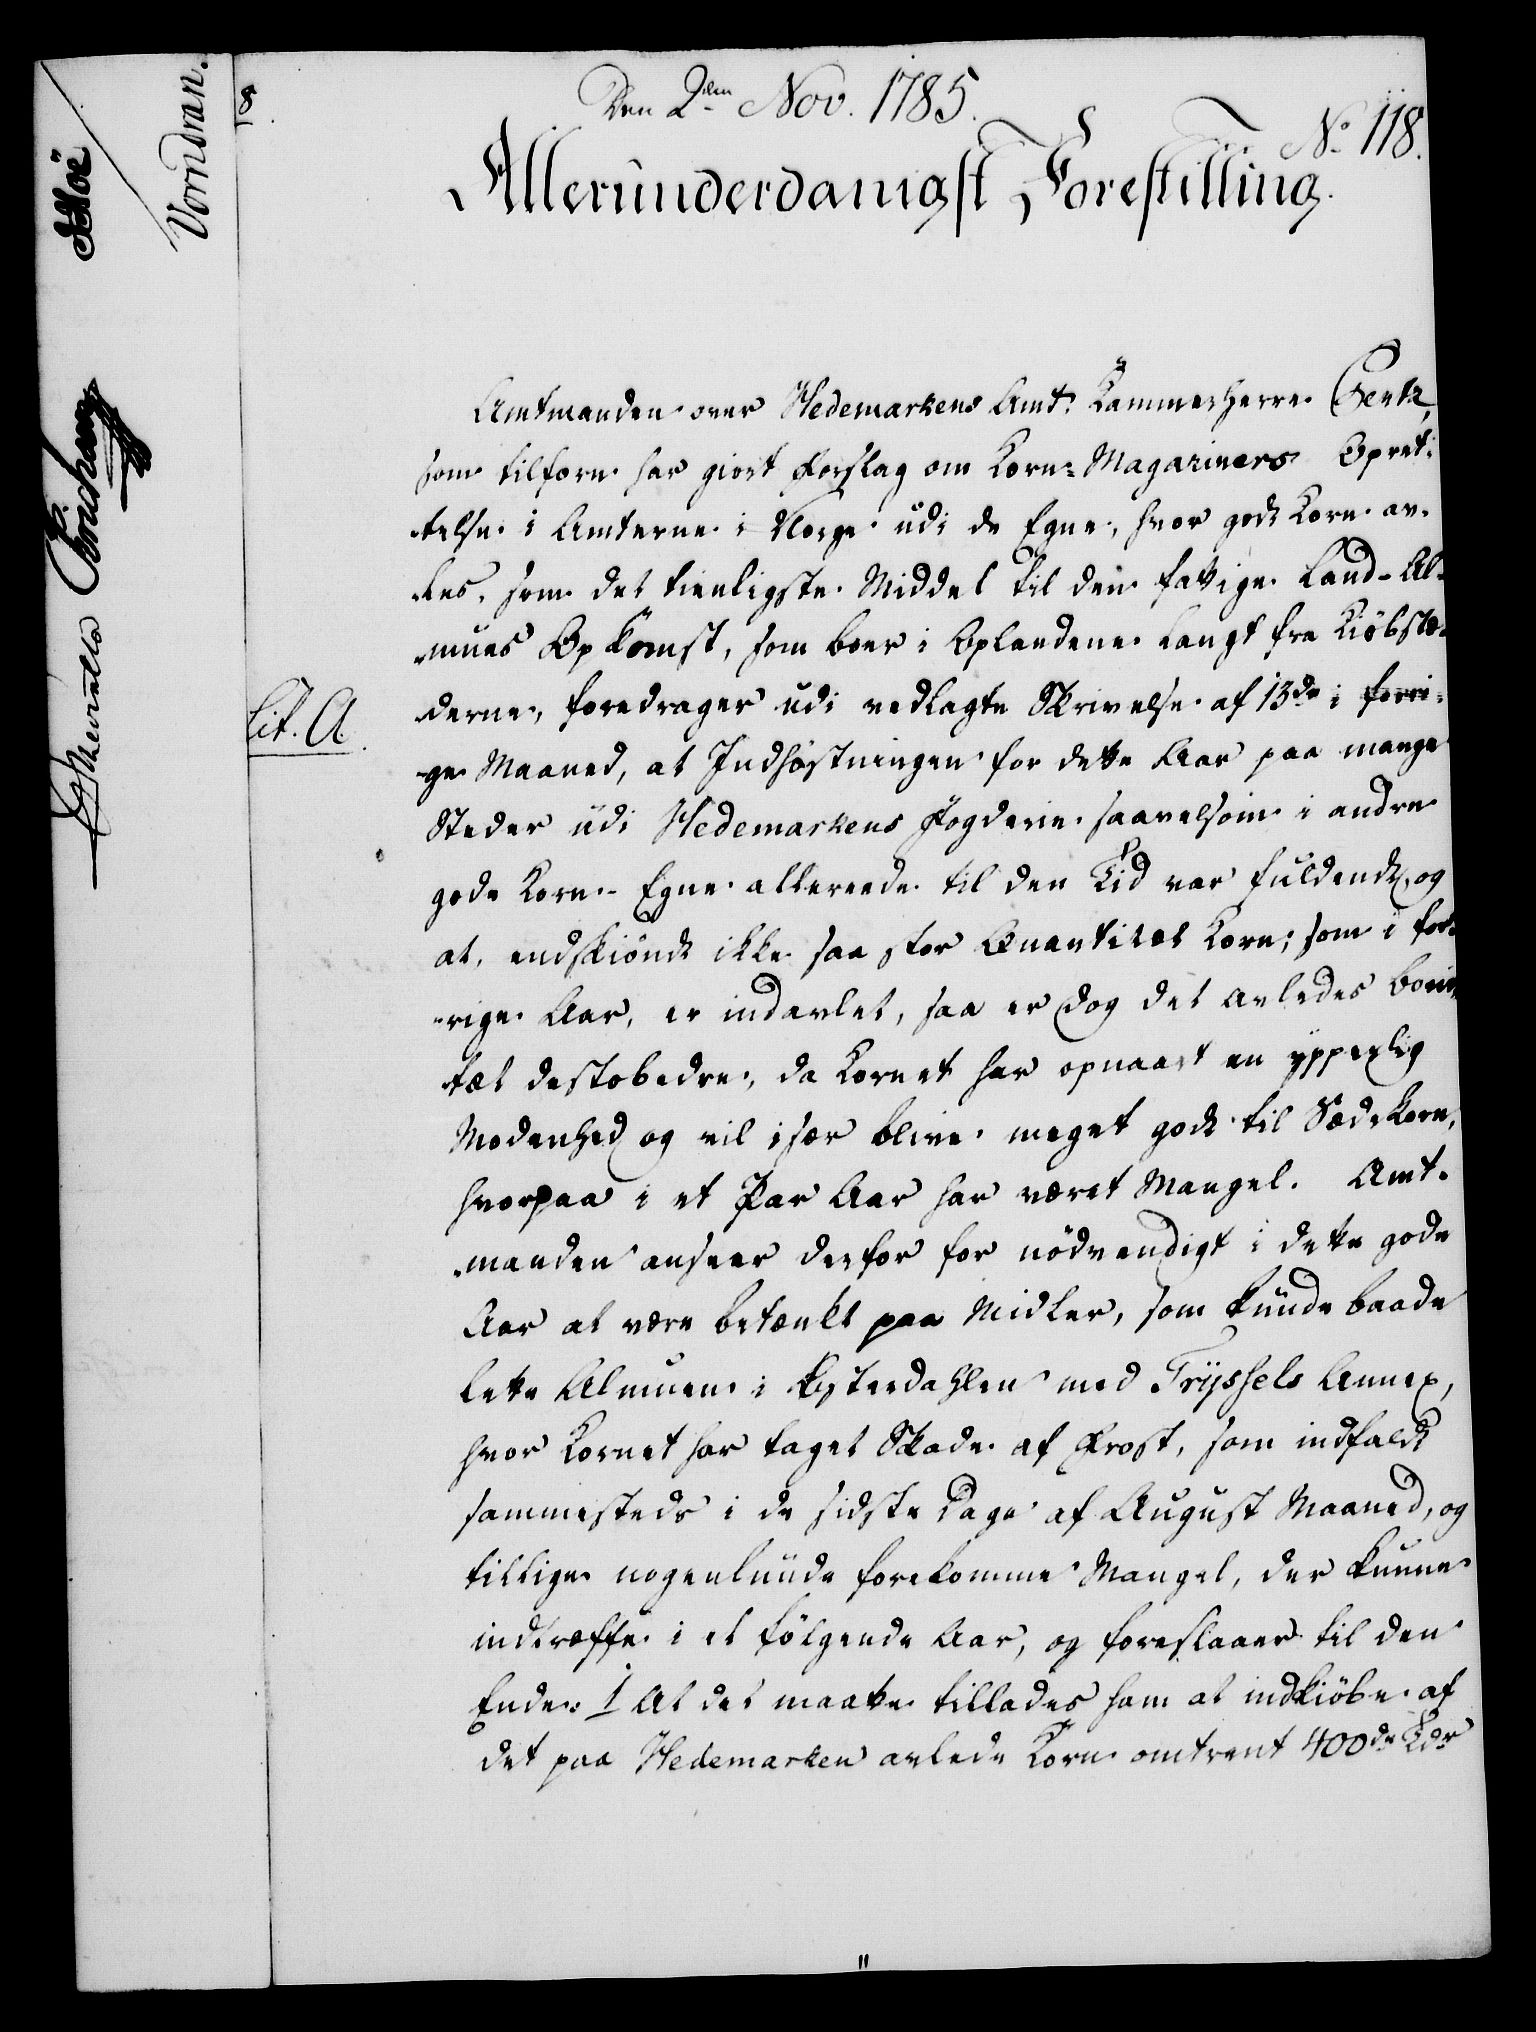 Den 2den Nov. 1785.
No 118.
Allerunderdanigst Forestilling.
Amtmanden over Hedemarkens Amt Kammerherre
som tilforn har giort Forslag om Korn-Magaziners Opret-
telse i Amterne i Norge udi de Egne, hvor godt Korn av-
les, som det tienligste Middel til den fattige Land-Al-
mues Opkomst, som boer i Oplandene langt fra Kiøbstæ-
derne, foredrager udi vedlagte Skrivelse af 13de i forri-
Lit. A.
ge Maaned, at Indhøstningen for dette Aar paa mange
Steder udi Hedemarkens Fogderie saavelsom i andre
gode Korn-Egne allereede til den Tid var fuldendt, og
at, endskiøndt ikke saa stor Quantitet Korn, som i for-
rige Aar, er indavlet, saa er dog det avledes Boni-
tæt destobedre, da Kornet har opnaaet en ypperlig
Modenhed og vil især blive meget godt til Sædekorn,
hvorpaa i et Par Aar har været Mangel. Amt-
manden anseer derfor for nödvendigt i dette gode
Aar at være betænkt paa Midler, som kunde baade
lette Almuen i Østerdahlen med Tryssels Annex,
hvor Kornet har taget Skade af Frost, som indfaldt
sammesteds i de sidste Dage af August Maaned, og
tillige nogenlunde forekomme Mangel, der kunne
indtræffe i et følgende Aar, og foreslaaer til den
Ende: 1 At det maatte tillades ham at indkiöbe af
det paa Hedemarken avlede Korn omtrent 400de Tdr
8
Vorndran.